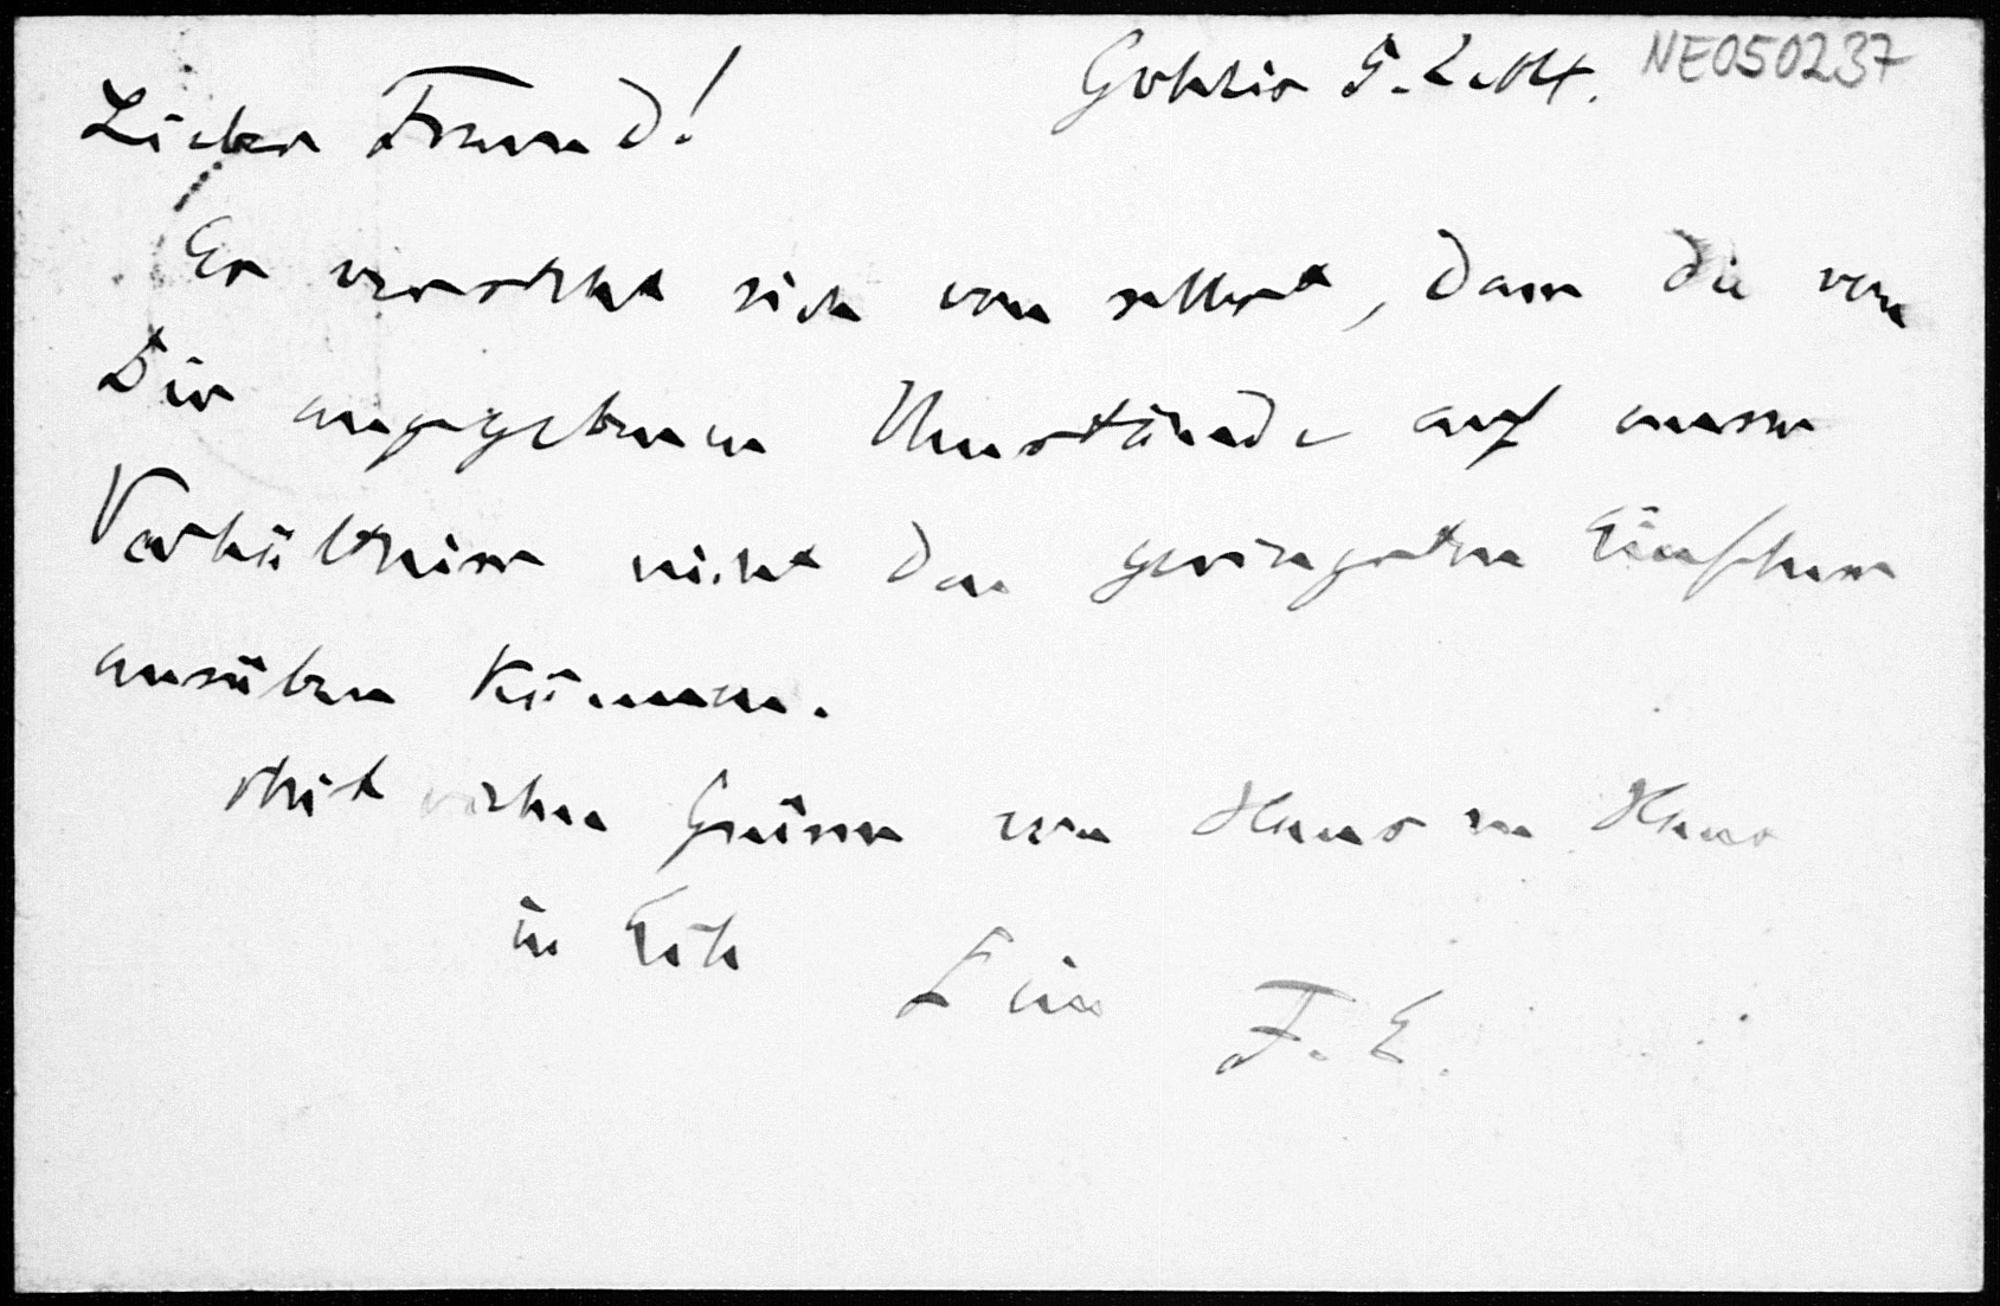 Gohlis 5. 2. 04. NE050237
Lieber Freund!
Es versteht sich von selbst, dass die von
Dir angegebenen Umstände auf unser
Verhältniss nicht den geringsten Einfluss
ausüben können.
Mit vielen Grüssen von Haus zu Haus
in Eile
Dein F. E.